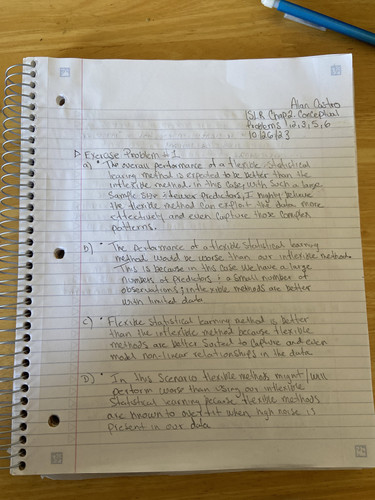 Alan Castro
ISLR Chap 2 Conceptual
Problems 1,2,3,5,6
10/26/23
Exercise Problem #1
a) • The overall performance of a flexible statistical
learing method is expected to be better than the
inflexible method. in this case, with such a large
Sample size + fewer predictors, I highly believe
the flexible method can exploit the data more
effectively and even capture those complex
patterns.
b) • The performance of a flexible statistical learning
method would be worse than our inflexible method.
This is because in this case we have a large
numbers of predictors + a small number of
observations; inflexible methods are better
with limited data
c) • Flexible statistical learning method is better
than the inflexible method because flexible
methods are better suited to capture and even
model non-linear relationships in the data
D) • In this Scenario flexible methods might / will
perform worse than using our inflexible
statistical learning because flexible methods
are known to overfit when high noise is
present in our data